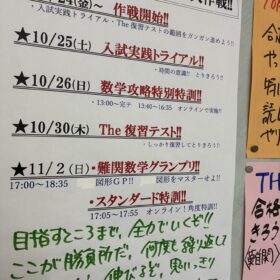 24(金)~
作戦開始!!
・入試実践トライアル・The復習テストの範囲をガンガン進めよう!!
★10/25(土) 入試実践トライアル!!
・時間の意識!! とりきろう!!
★10/26(日) 数学攻略特別特訓!!
・13:00~完テ 13:40~16:35 オンラインで実施!!
★10/30(木) The 復習テスト!!
・しっかり復習してとりきろう!!
★11/2(日)・難関数学グランプリ!!
17:00~18:35 図形GP!! 図形をマスターせよ!!
・スタンダード特訓!!
17:05~17:55 オンライン!角度特訓!!
目指すところまで、全力でいくぞ!!
ここが勝負所だ。何度も繰り返して
合格